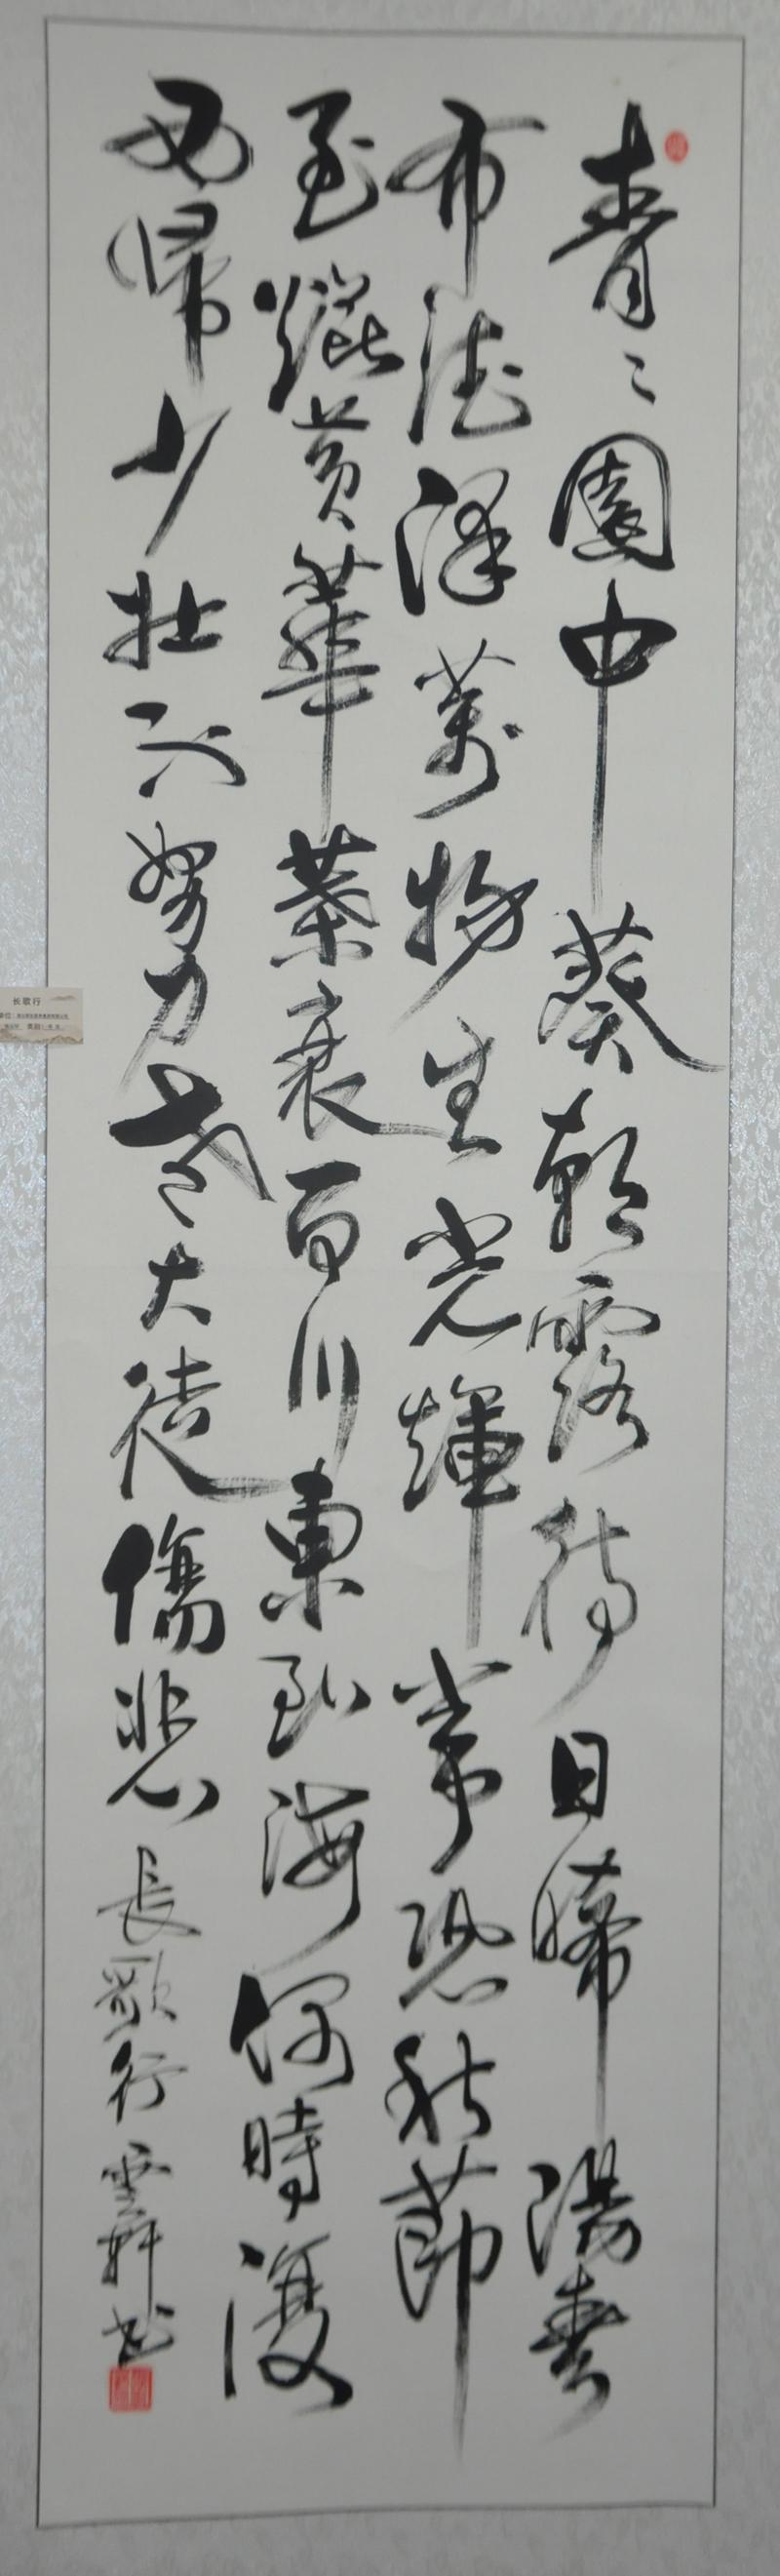 青〻園中葵朝露待日晞陽春
布德澤萬物生光輝常恐秋節
至焜黃華葉衰百川東到海何時復
西歸少壯不努力老大徒傷悲長歌行雲軒书
长歌行